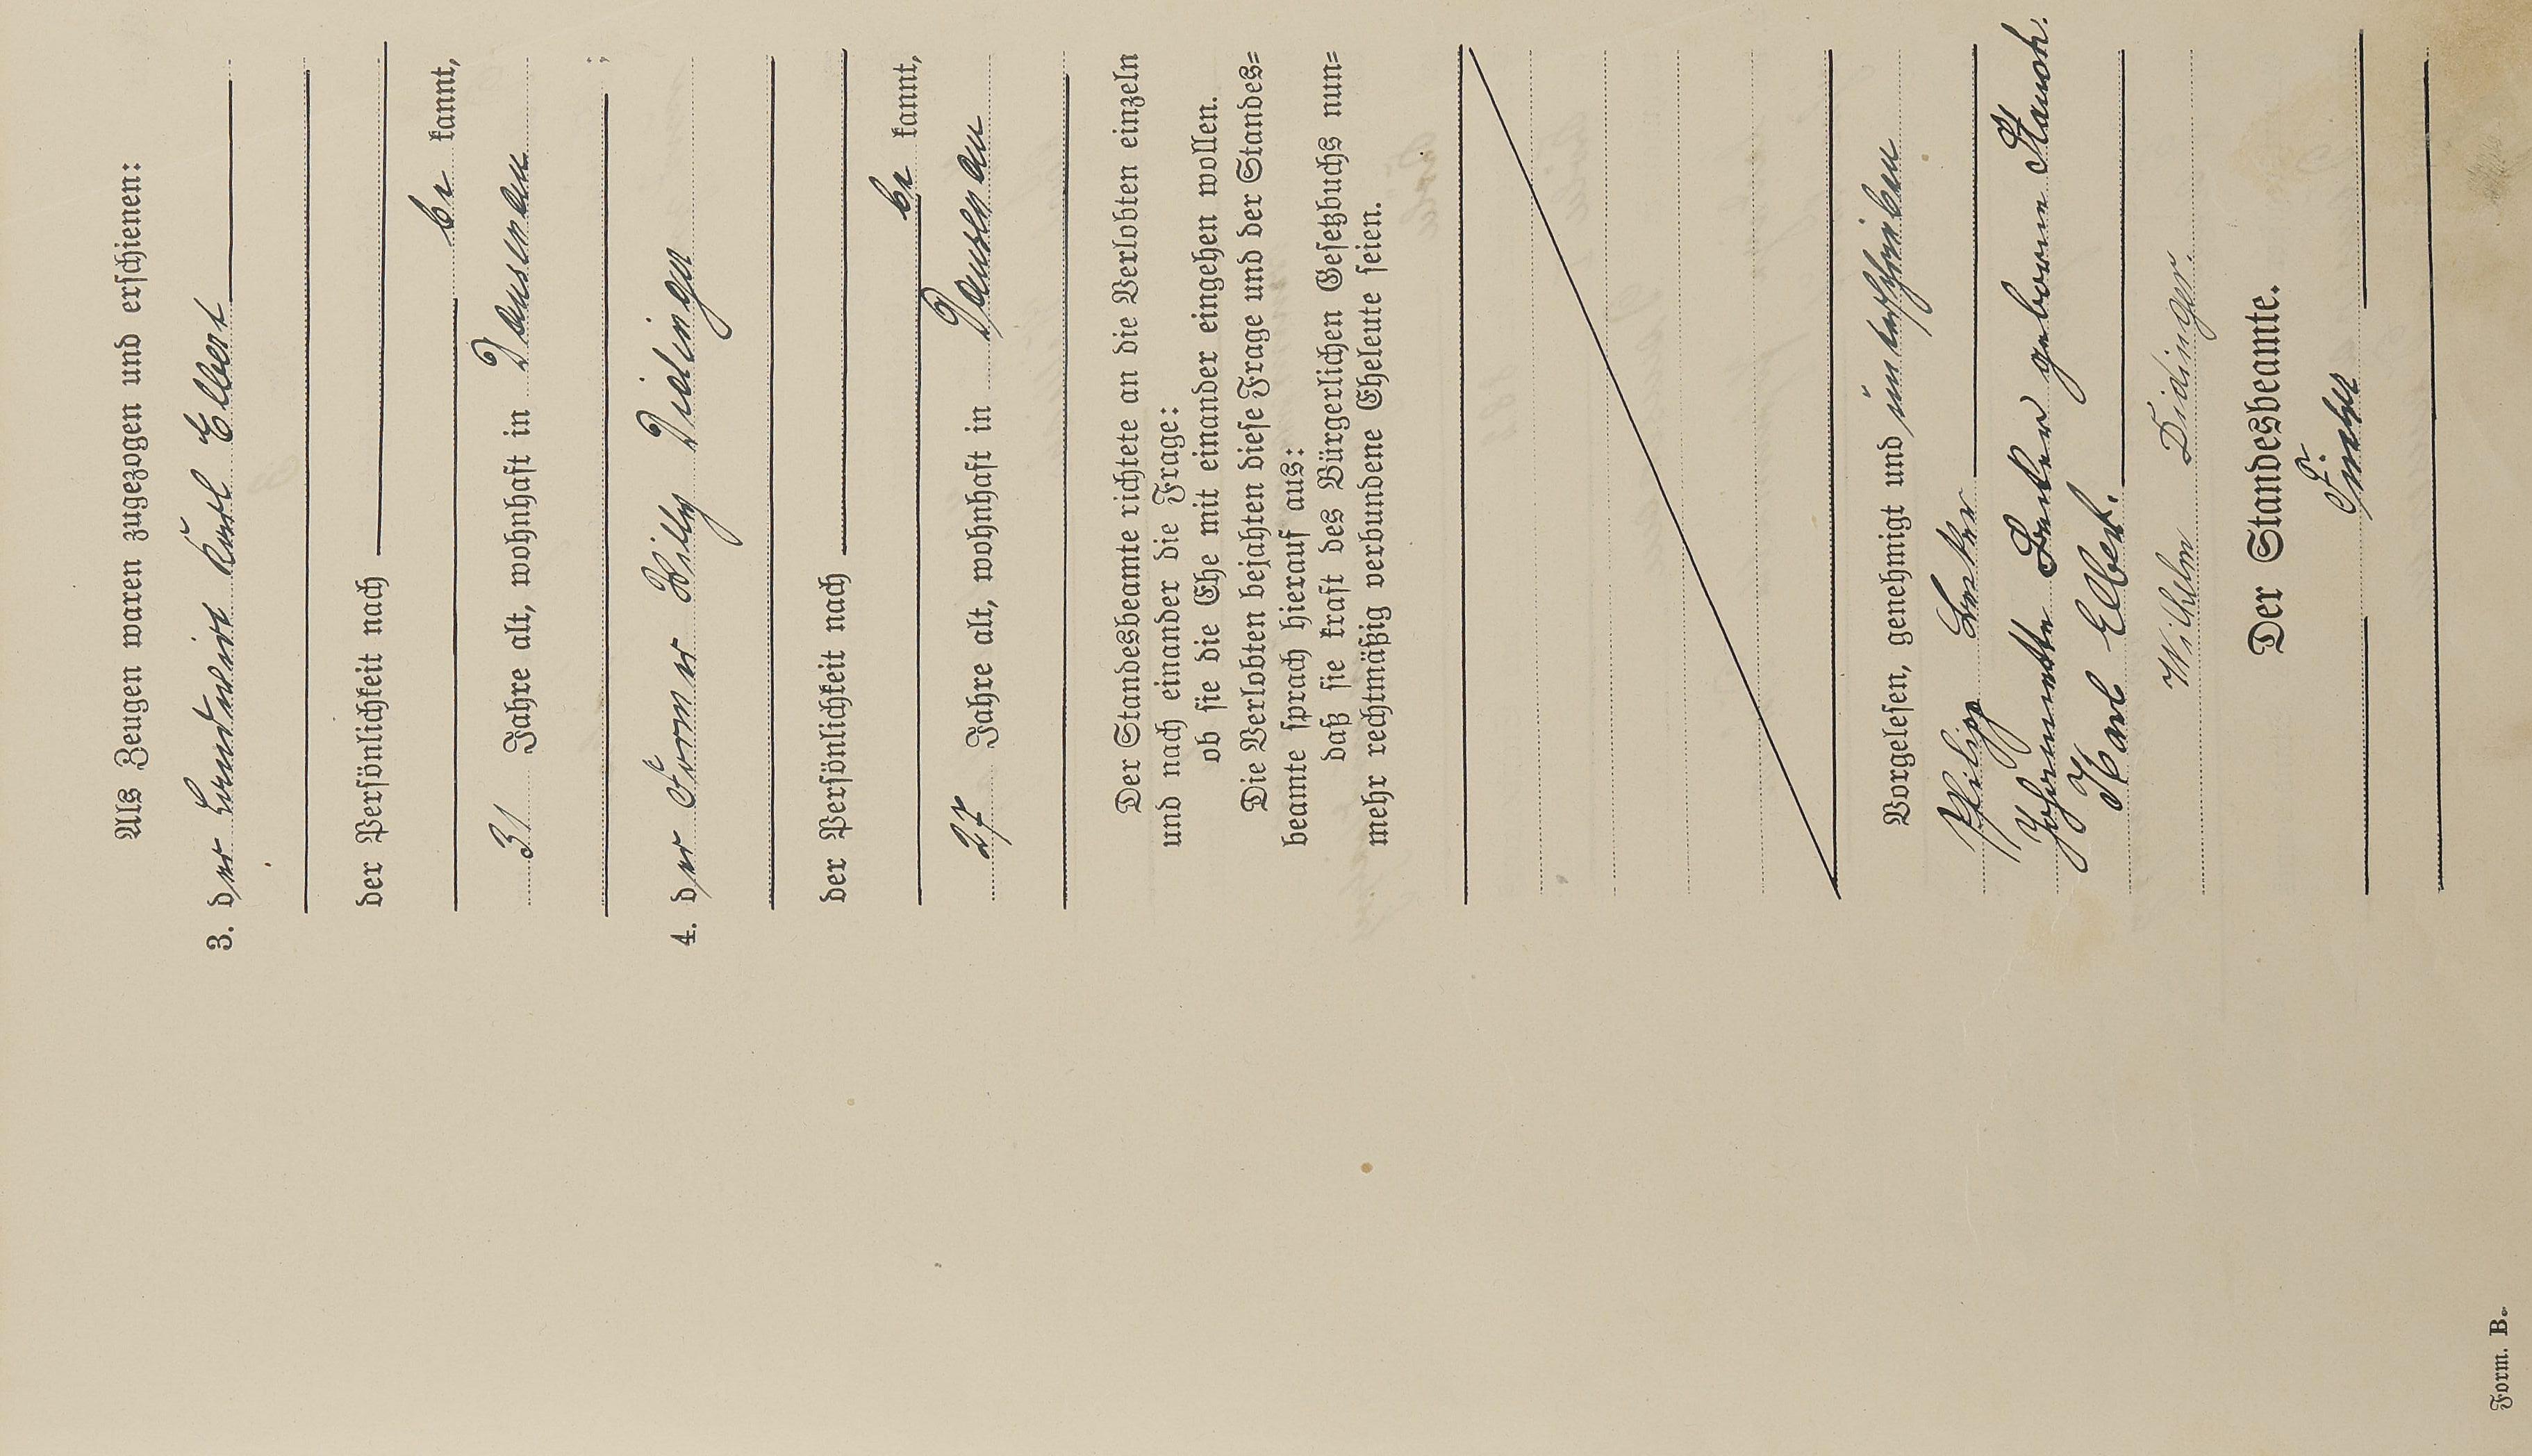 Als Zeugen waren zugezogen und erschienen:
3. der Landwirt Karl Elbert
der Persönlichkeit nach
be kannt,
31 Jahre alt, wohnhaft in Dausenau
;
4. der Former Willy Didinger
der Persönlichkeit nach
be kannt,
27 Jahre alt, wohnhaft in Dausenau
Der Standesbeamte richtete an die Verlobten einzeln
und nach einander die Frage:
ob sie die Ehe mit einander eingehen wollen.
Die Verlobten bejahten diese Frage und der Standes=
beamte sprach hierauf aus:
daß sie kraft des Bürgerlichen Gesetzbuchs nun=
mehr rechtmäßig verbundene Eheleute seien.
Vorgelesen, genehmigt und unterschrieben
Philipp Becker
Johannette Becker geborene
Karl Elbert.
Wilhelm Didinger.
Der Standesbeamte.
Form. B.